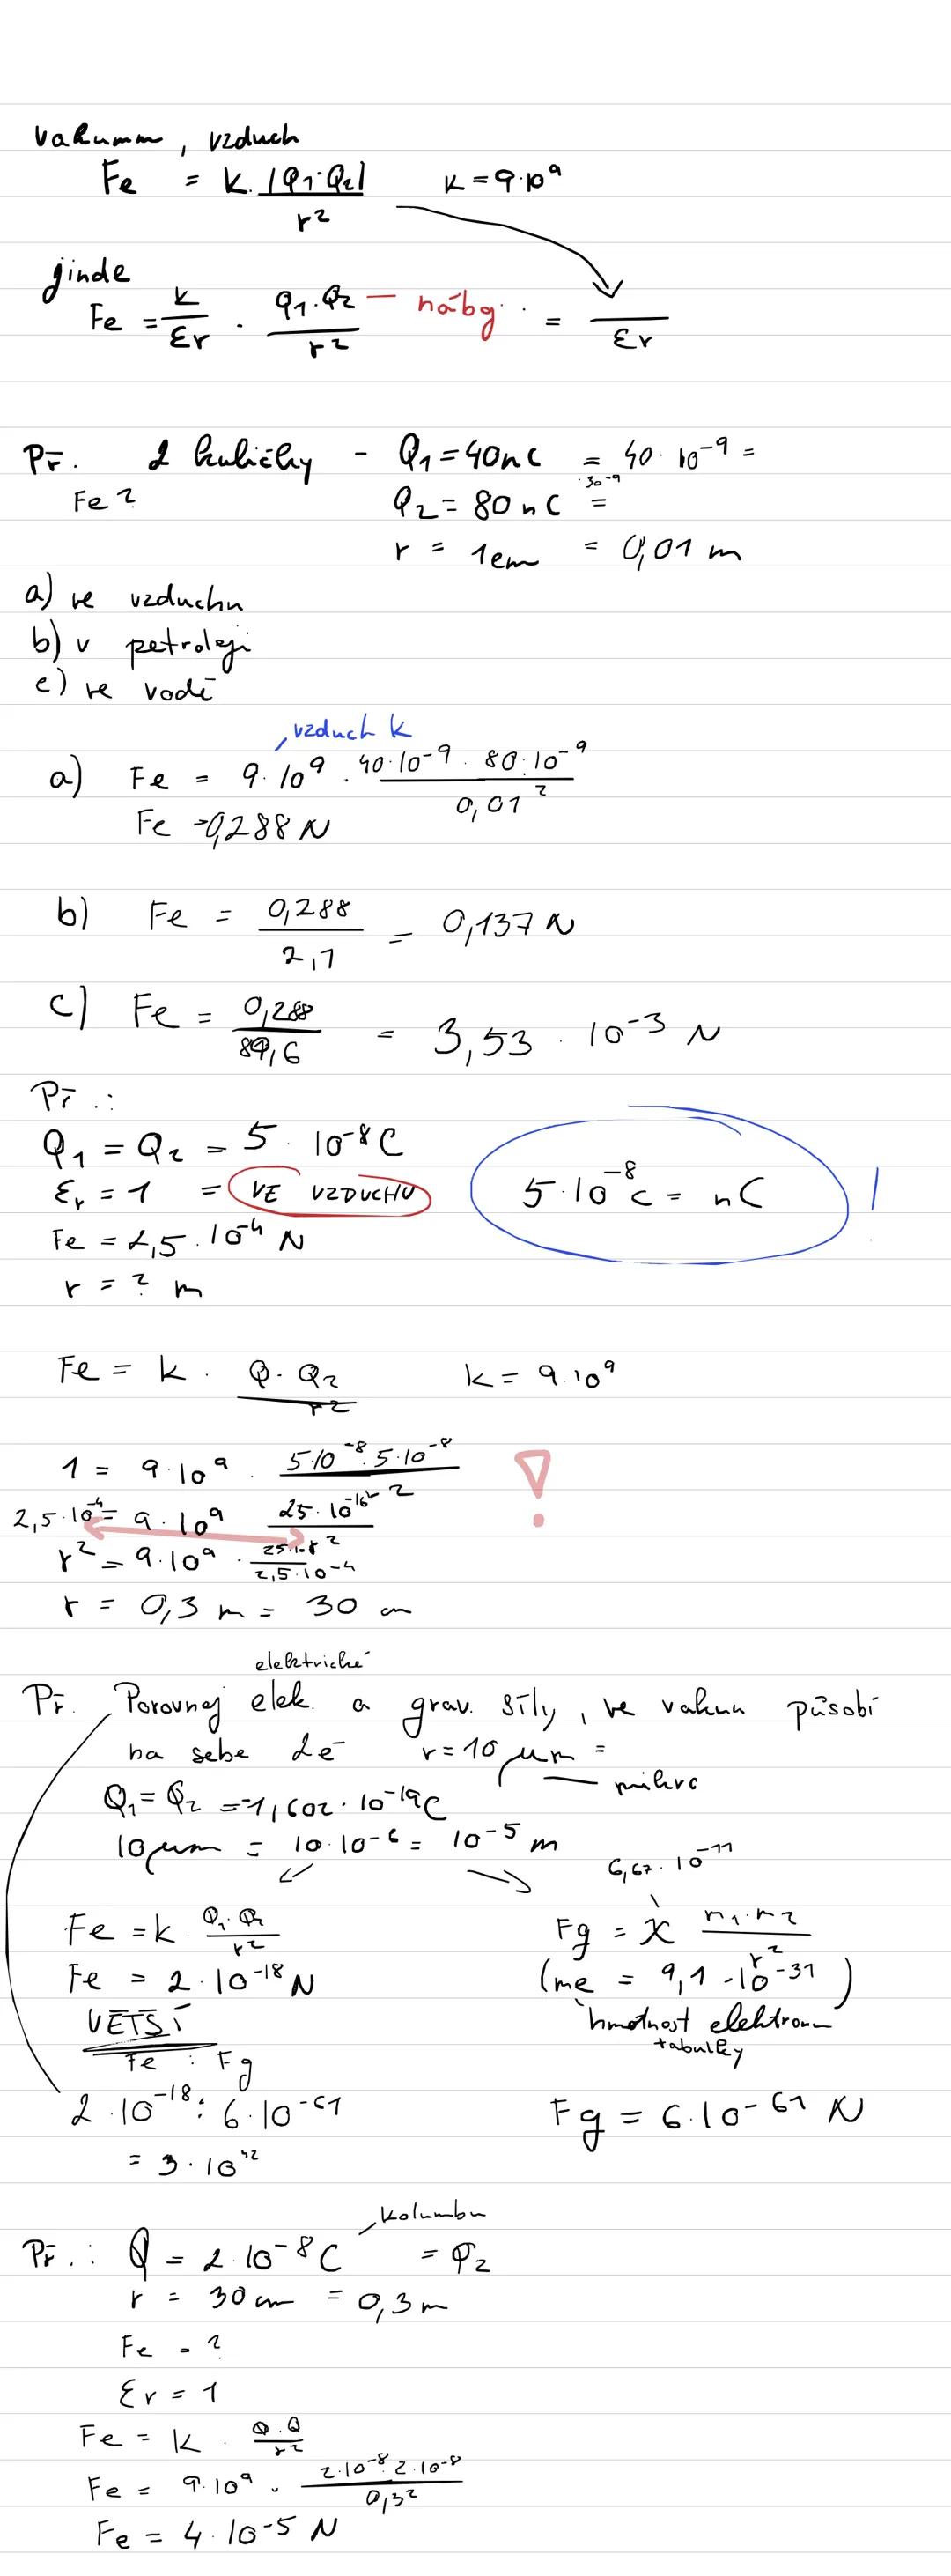 vakumm, vzduch
Fe = k. |Q1·Q2| / r² K=9·10⁹
jinde
Fe = k/εr · Q1·Q2 / r² — náboj · = / εr
Př. 2 kuličky - Q1=40nC = 40·10⁻⁹ =
Fe? Q2=80nC =
r = 1cm = 0,01 m
a) ve vzduchu
b) v petroleji
c) ve vodě
vzduch k
a) Fe = 9·10⁹ · 40·10⁻⁹ · 80·10⁻⁹ / 0,01²
Fe =0,288 N
b) Fe = 0,288 / 2,1 = 0,137 N
c) Fe = 0,288 / = 3,53 · 10⁻³ N
Př.:
Q1 = Q2 = 5 · 10⁻⁸ C
εr = 1 = VE VZDUCHU 5·10⁻⁸ C = nC !
Fe = 2,5·10⁻⁴ N
r = ? m
Fe = k · Q·Q2 / r² k = 9·10⁹
1 = 9·10⁹ · 5·10⁻⁸·5·10⁻⁸ !
2,5·10⁻⁴ = 9·10⁹ 25·10⁻¹⁶ / r²
r² = 9·10⁹ · / 2,5·10⁻⁴
r = 0,3 m = 30 cm
elektrické
Př. Porovnej elek. a grav. síly, ve vakuu působí
na sebe 2e⁻ r=10 μm =
mikro
Q1=Q2 =-1,602·10⁻¹⁹C
10μm = 10·10⁻⁶ = 10⁻⁵ m
6,67·10⁻¹¹
Fe = k Q1·Q2 / r² Fg = ϰ m1·m2 / r²
Fe = 2·10⁻¹⁸ N (me = 9,1·10⁻³¹)
VĚTŠÍ hmotnost elektronu
tabulky
Fe : Fg
2·10⁻¹⁸ : 6·10⁻⁶¹ Fg = 6·10⁻⁶¹ N
= 3·10⁴²
kolumbu
Př.: Q = 2·10⁻⁸ C = Q2
r = 30cm = 0,3m
Fe = ?
εr = 1
Fe = k · Q·Q / r²
Fe = 9·10⁹ · 2·10⁻⁸·2·10⁻⁸ / 0,3²
Fe = 4·10⁻⁵ N